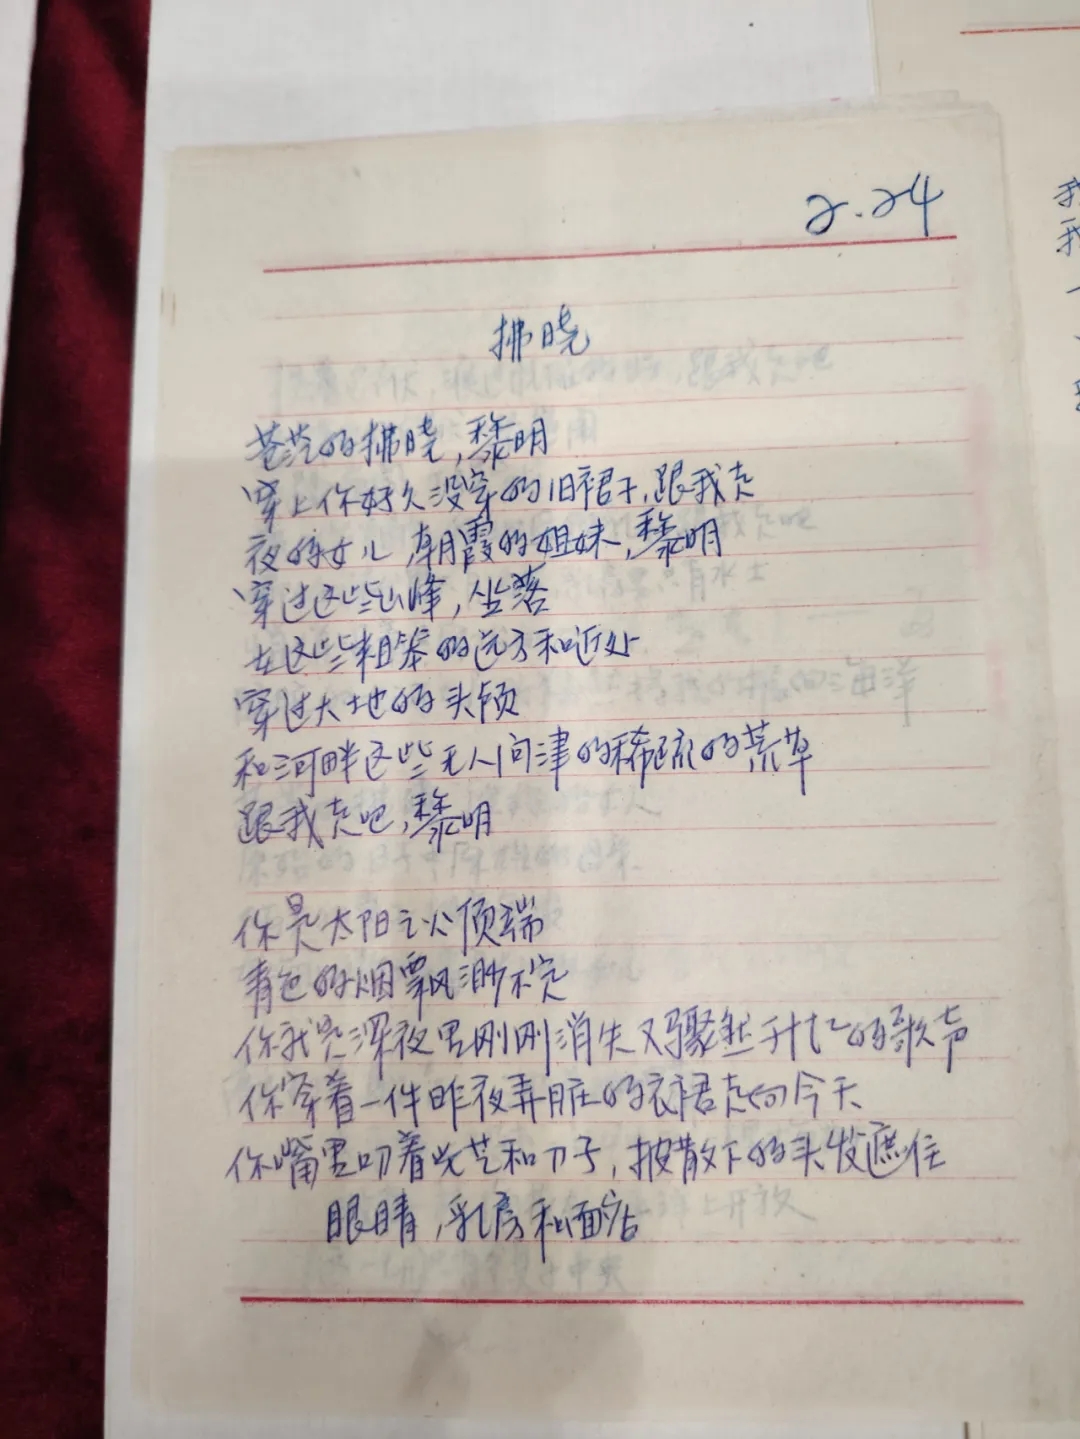 2.24
拂晓
苍茫的拂晓,黎明
穿上你好久没穿的旧裙子,跟我走
夜的女儿,朝霞的姐妹,黎明
穿过这些山峰,坐落
在这些粗笨的远方和近处
穿过大地的头颅
和河畔这些无人问津的稀疏的荒草
跟我走吧,黎明
你是太阳之火顶端
青色的烟飘渺不定
你就是深夜里刚刚消失又骤然升起的歌声
你穿着一件昨夜弄脏的衣裙走向今天
你嘴里叼着光芒和刀子,披散下的头发遮住
眼睛,乳房和面容